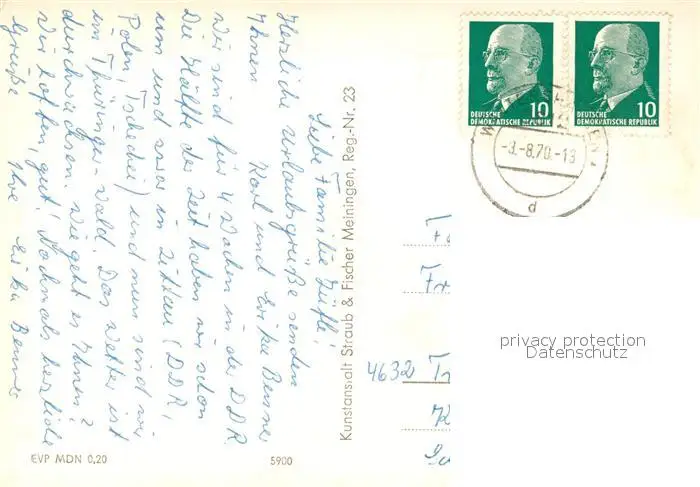 Liebe Familie
Herzliche Urlaubsgrüße senden
Ihnen Karl und Erika Benner
Wir sind für 4 Wochen in der DDR.
Die Hälfte der Zeit haben wir schon
um und zwar in Zittau (DDR,
Polen, Tschechei) und nun sind wir
im Thüringer-Wald. Das Wetter ist
durchwachsen. Wie geht es Ihnen?
Wir hoffen, gut! Nochmals herzliche
Grüße Ihre Erika Benner
Kunstanstalt Straub & Fischer Meiningen, Reg.-Nr. 23
EVP MDN 0,20
5900
10
DEUTSCHE
DEMOKRATISCHE REPUBLIK
10
DEUTSCHE
DEMOKRATISCHE REPUBLIK
-3.-8.70.-18
d
Fr
4632 Tr
privacy protection
Datenschutz